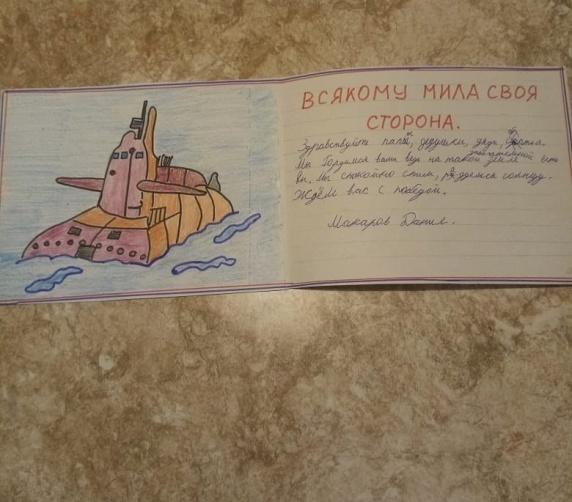 ВСЯКОМУ МИЛА СВОЯ
СТОРОНА.
Здравствуйте папы, дедушки, дяди, братья.
Мы Гордимся вами ведь на такой замечательной земле есть
Вы. Мы спокойно спим, радуемся солнцу.
Ждём вас с победой.
Макаров Данил.